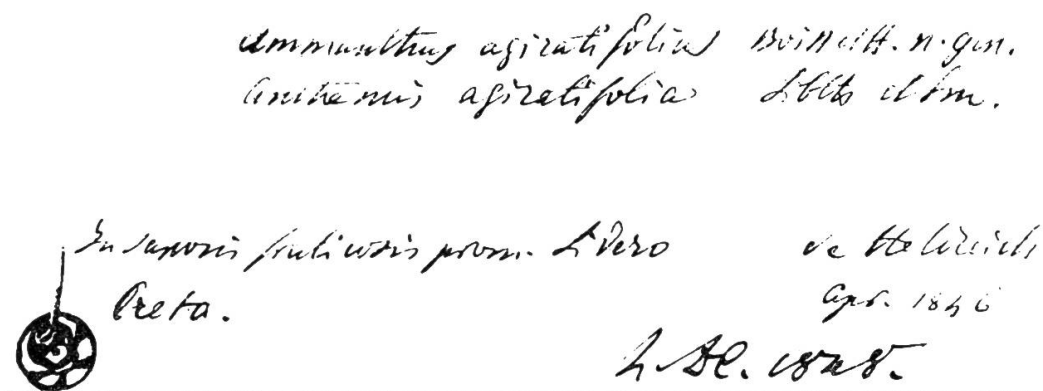 Ammanthus agiratifolia Boiss et H. n. gen.
Anthemis agiratifolia Sibth et Sm.
In saxosis fruticosis prom. Sidero
Creta.
de Heldreich
Apr. 1846
h. DC. 1848.